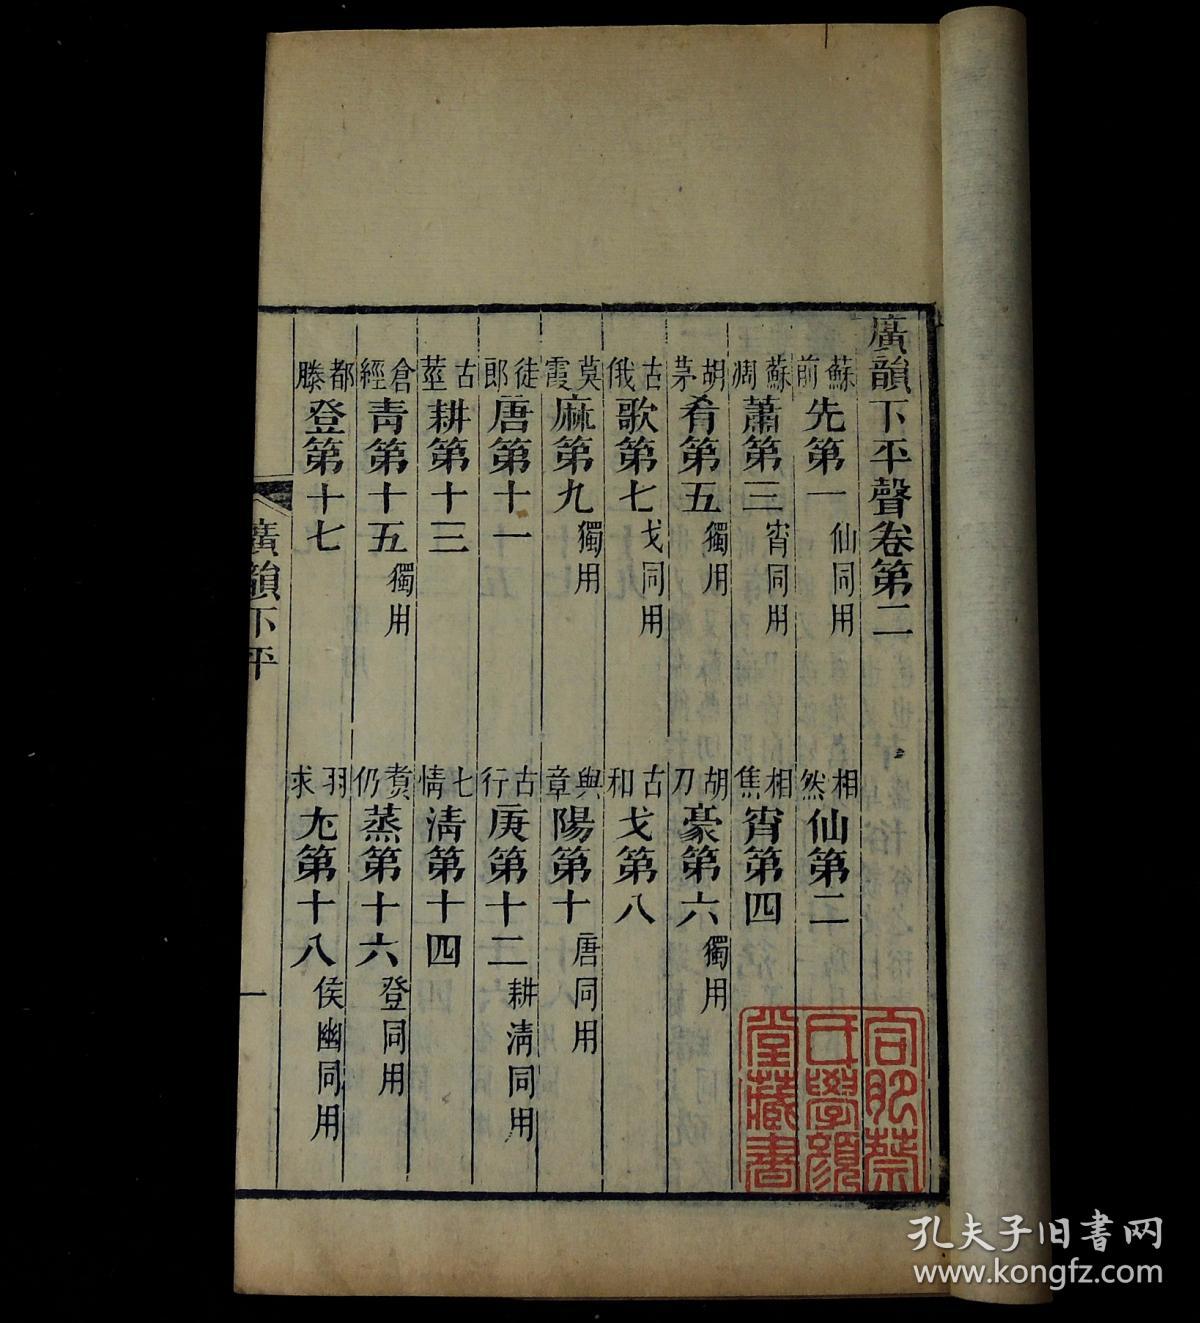 廣韻下平聲卷第二
蘇前先第一仙同用 相然仙第二
蘇凋蕭第三宵同用 相焦宵第四
胡茅肴第五獨用 胡刀豪第六獨用
古俄歌第七戈同用 古和戈第八
莫霞麻第九獨用 與章陽第十唐同用
徒郎唐第十一 古行庚第十二耕清同用
古莖耕第十三 七情清第十四
倉經青第十五獨用 煑仍蒸第十六登同用
都滕登第十七 羽求尤第十八侯幽同用
廣韻下平
一
合肥蔡
氏學顏
堂藏書
孔夫子旧书网
www.kongfz.com